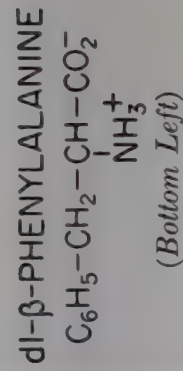 dl-β-PHENYLALANINE
C₆H₅-CH₂-CH-CO₂⁻
NH₃⁺
(Bottom Left)